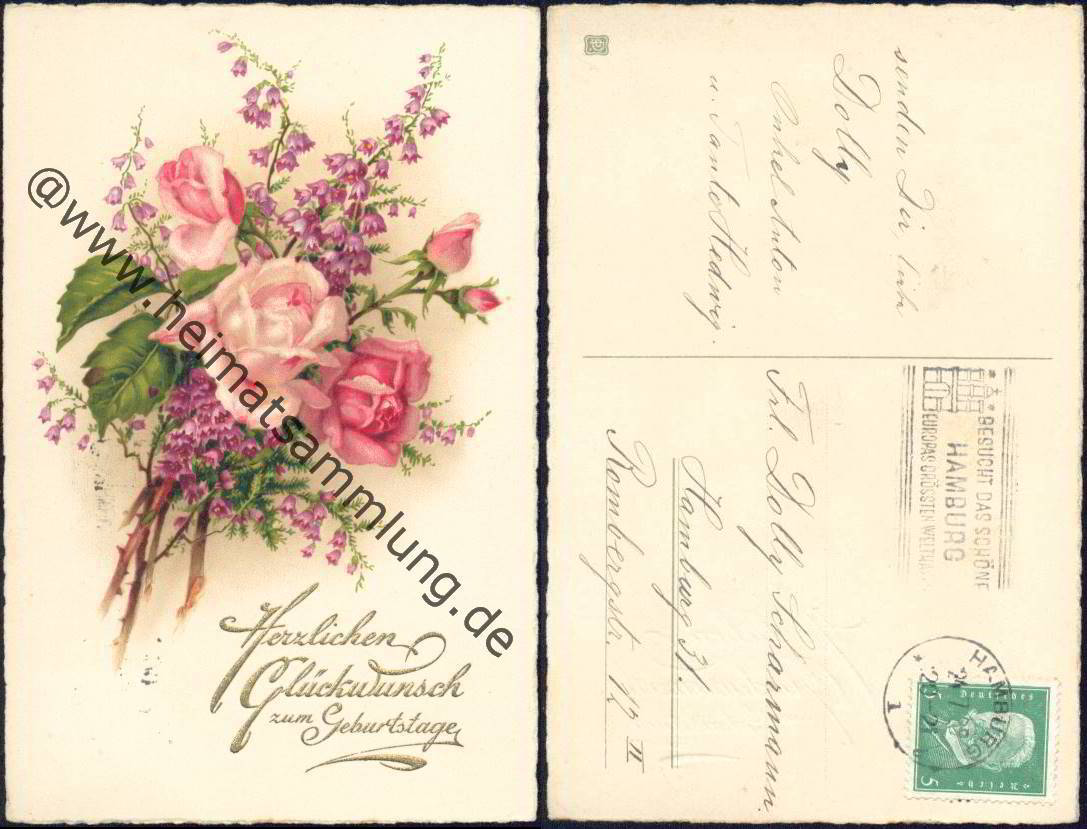 Herzlichen
Glückwunsch
zum Geburtstage
@www.heimatsammlung.de
senden Dir, liebe
Dolly
Onkel Anton
u. Tante Hedwig.
BESUCHT DAS SCHÖNE
HAMBURG
EUROPAS GRÖSSTEN
HAMBURG
1
Deutsches
Reich
5
Frl. Dolly Scharmann.
Hamburg 31.
Rombergstr. 12 II